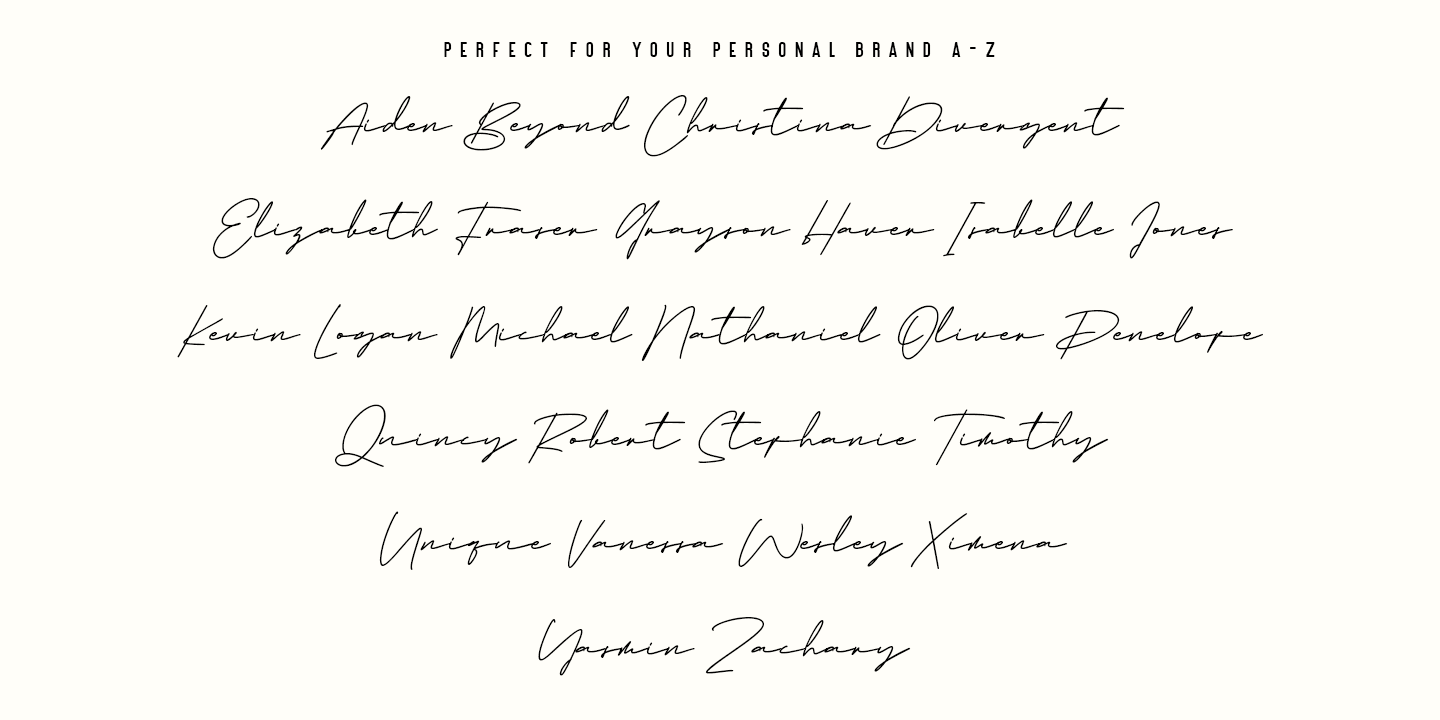 PERFECT FOR YOUR PERSONAL BRAND A-Z
Aiden Beyond Christina Divergent
Elizabeth Fraser Grayson Haver Isabelle Jones
Kevin Logan Michael Nathaniel Oliver Penelope
Quincy Robert Stephanie Timothy
Unique Vanessa Wesley Ximena
Yasmin Zachary